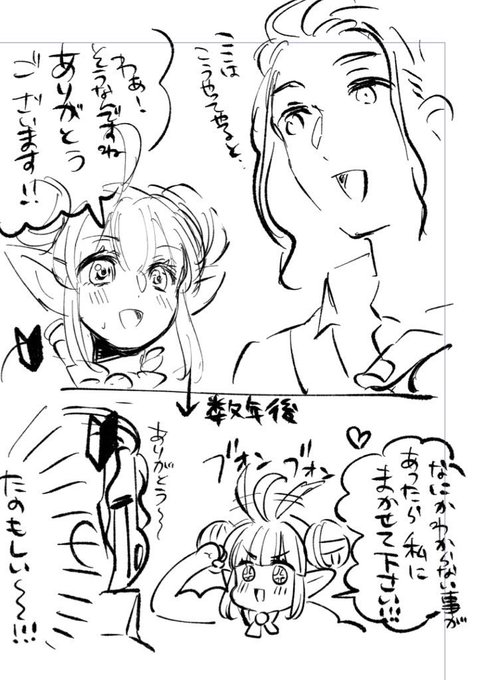 ここは
こうやってやると、
わぁー!
そうなんですね
ありがとう
ございます!!
数年後
なにかわからない事が
あったら私に
まかせて下さい!!!
ブォン ブォン
ありがとう〜
たのもしい〜〜!!!